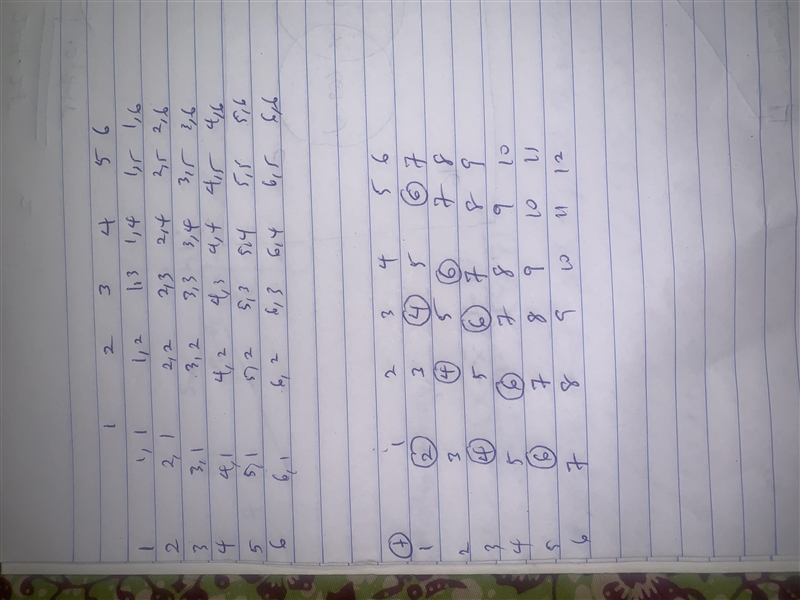 1 2 3 4 5 6
1 1,1 1,2 1,3 1,4 1,5 1,6
2 2,1 2,2 2,3 2,4 2,5 2,6
3 3,1 3,2 3,3 3,4 3,5 3,6
4 4,1 4,2 4,3 4,4 4,5 4,6
5 5,1 5,2 5,3 5,4 5,5 5,6
6 6,1 6,2 6,3 6,4 6,5 6,6
+ 1 2 3 4 5 6
1 2 3 4 5 6 7
2 3 4 5 6 7 8
3 4 5 6 7 8 9
4 5 6 7 8 9 10
5 6 7 8 9 10 11
6 7 8 9 10 11 12